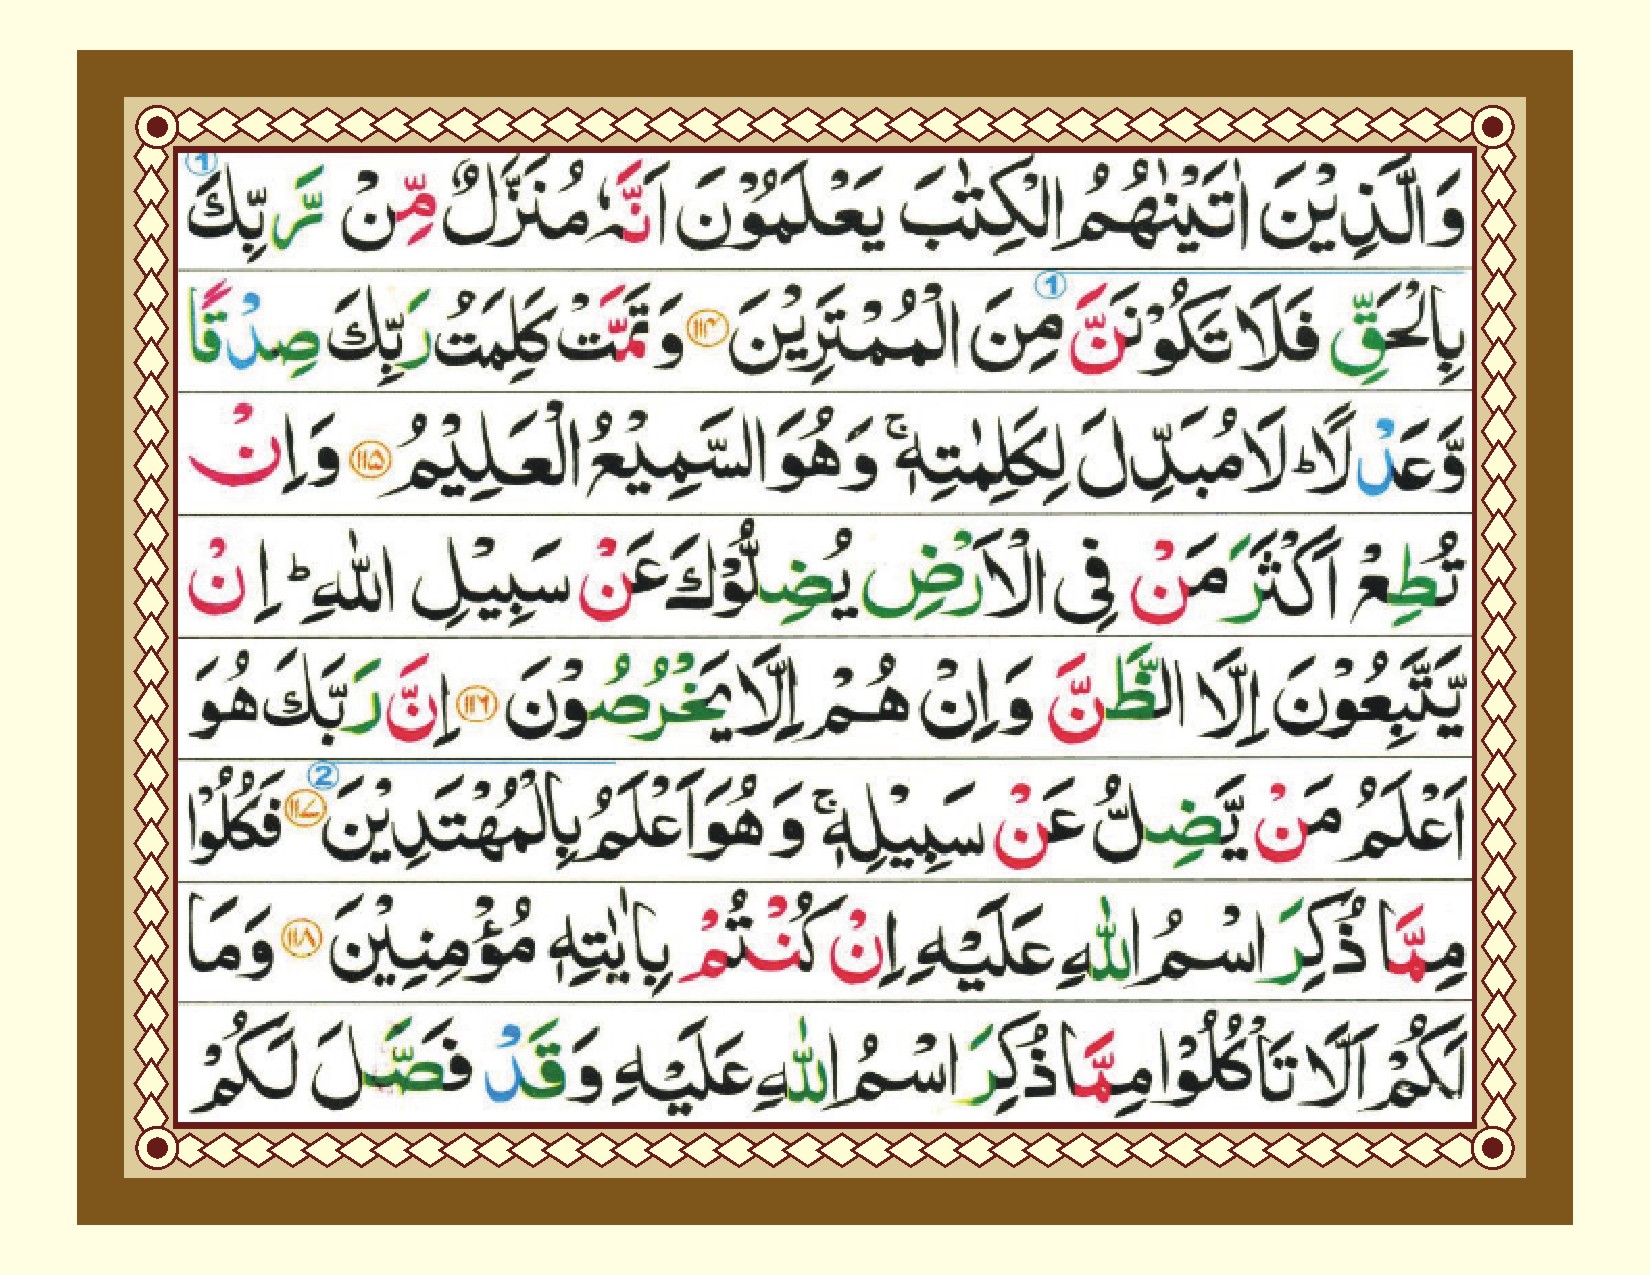 وَالَّذِيْنَ اٰتَيْنٰهُمُ الْكِتٰبَ يَعْلَمُوْنَ اَنَّهٗ مُنَزَّلٌ مِّنْ رَّبِّكَ ①
بِالْحَقِّ فَلَا تَكُوْنَنَّ ① مِنَ الْمُمْتَرِيْنَ ۝۱۱۴ وَتَمَّتْ كَلِمَتُ رَبِّكَ صِدْقًا
وَّعَدْلًا ؕ لَا مُبَدِّلَ لِكَلِمٰتِهٖ ۚ وَهُوَ السَّمِيْعُ الْعَلِيْمُ ۝۱۱۵ وَاِنْ
تُطِعْ اَكْثَرَ مَنْ فِى الْاَرْضِ يُضِلُّوْكَ عَنْ سَبِيْلِ اللّٰهِ ؕ اِنْ
يَّتَّبِعُوْنَ اِلَّا الظَّنَّ وَاِنْ هُمْ اِلَّا يَخْرُصُوْنَ ۝۱۱۶ اِنَّ رَبَّكَ هُوَ
اَعْلَمُ مَنْ يَّضِلُّ عَنْ سَبِيْلِهٖ ۚ وَهُوَ اَعْلَمُ بِالْمُهْتَدِيْنَ ② ۝۱۱۷ فَكُلُوْا
مِمَّا ذُكِرَ اسْمُ اللّٰهِ عَلَيْهِ اِنْ كُنْتُمْ بِاٰيٰتِهٖ مُؤْمِنِيْنَ ۝۱۱۸ وَمَا
لَكُمْ اَلَّا تَاْكُلُوْا مِمَّا ذُكِرَ اسْمُ اللّٰهِ عَلَيْهِ وَقَدْ فَصَّلَ لَكُمْ